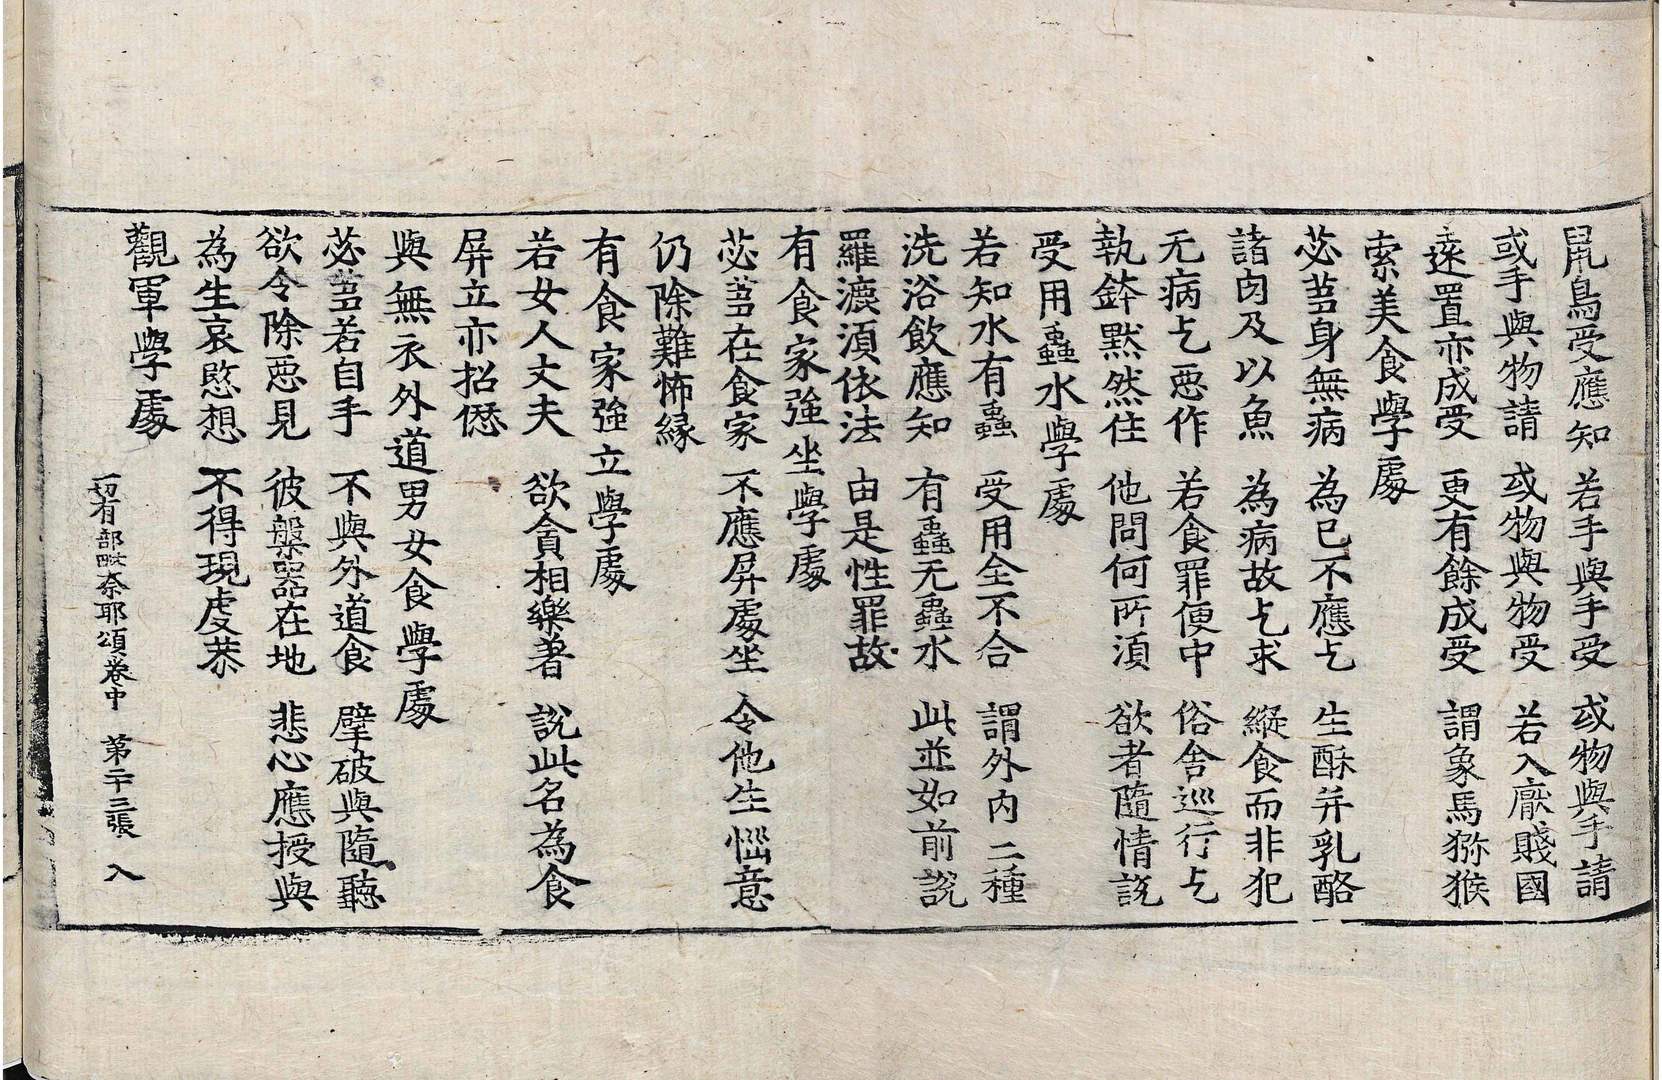 鼠鳥受應知 若手與手受 或物與手請
或手與物請 或物與物受 若入厭賤國
遠置亦成受 更有餘成受 謂象馬猕猴
索美食學處
苾芻身無病 為已不應乞 生酥并乳酪
諸肉及以魚 為病故乞求 縱食而非犯
无病乞惡作 若食罪便中 俗舍巡行乞
執鉢默然住 他問何所湏 欲者隨情說
受用蟲水學處
若知水有蟲 受用全不合 謂外内二種
洗浴飲應知 有蟲无蟲水 此並如前説
羅漉湏依法 由是性罪故
有食家強坐學處
苾芻在食家 不應屏處坐 令他生惱意
仍除難怖緣
有食家強立學處
若女人丈夫 欲貪相樂著 說此名為食
屏立亦招愆
與無衣外道男女食學處
苾芻若自手 不與外道食 擘破與隨聽
欲令除惡見 彼盤器在地 悲心應授與
為生哀愍想 不得現虔恭
觀軍學處
一切有部毗奈耶頌卷中 第二十三張 入